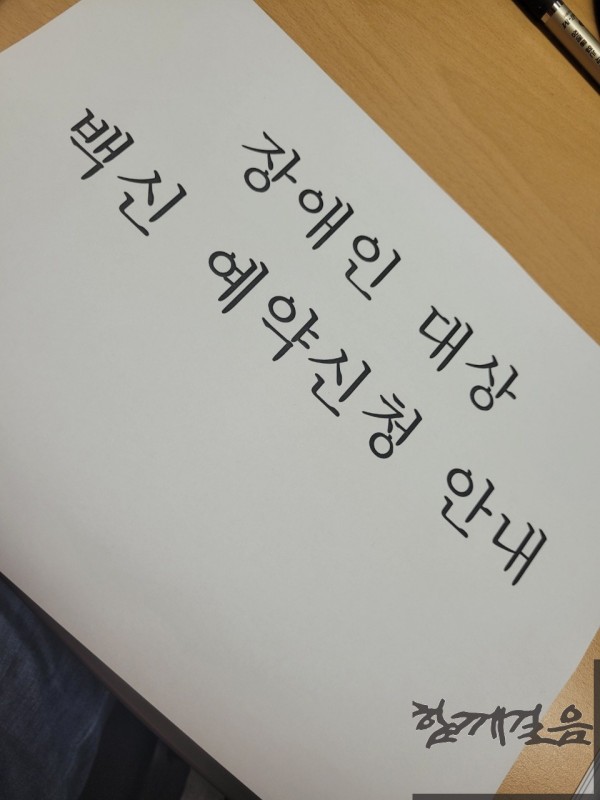 장애인 대상
백신 예약신청 안내
함께걸음